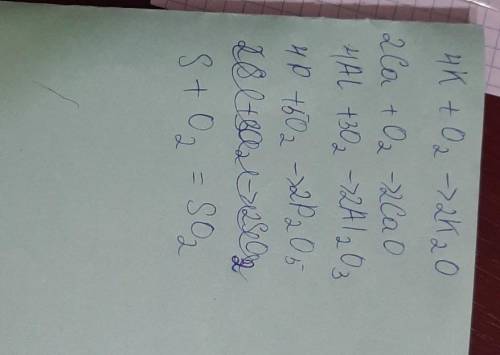 4K + O₂ -> 2K₂O
2Ca + O₂ -> 2CaO
4Al + 3O₂ -> 2Al₂O₃
4P + 5O₂ -> 2P₂O₅
S + O₂ = SO₂